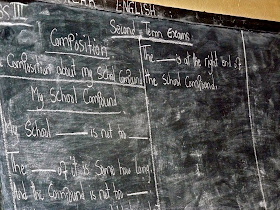 SS III
ENGLISH
Second Term Exams
Composition
Composition about my School Compound
My School Compound
My School ___ is not too ___
___ of it is some how long.
And the Compound is not too ___
The ___ is at the right end of
the School Compound.